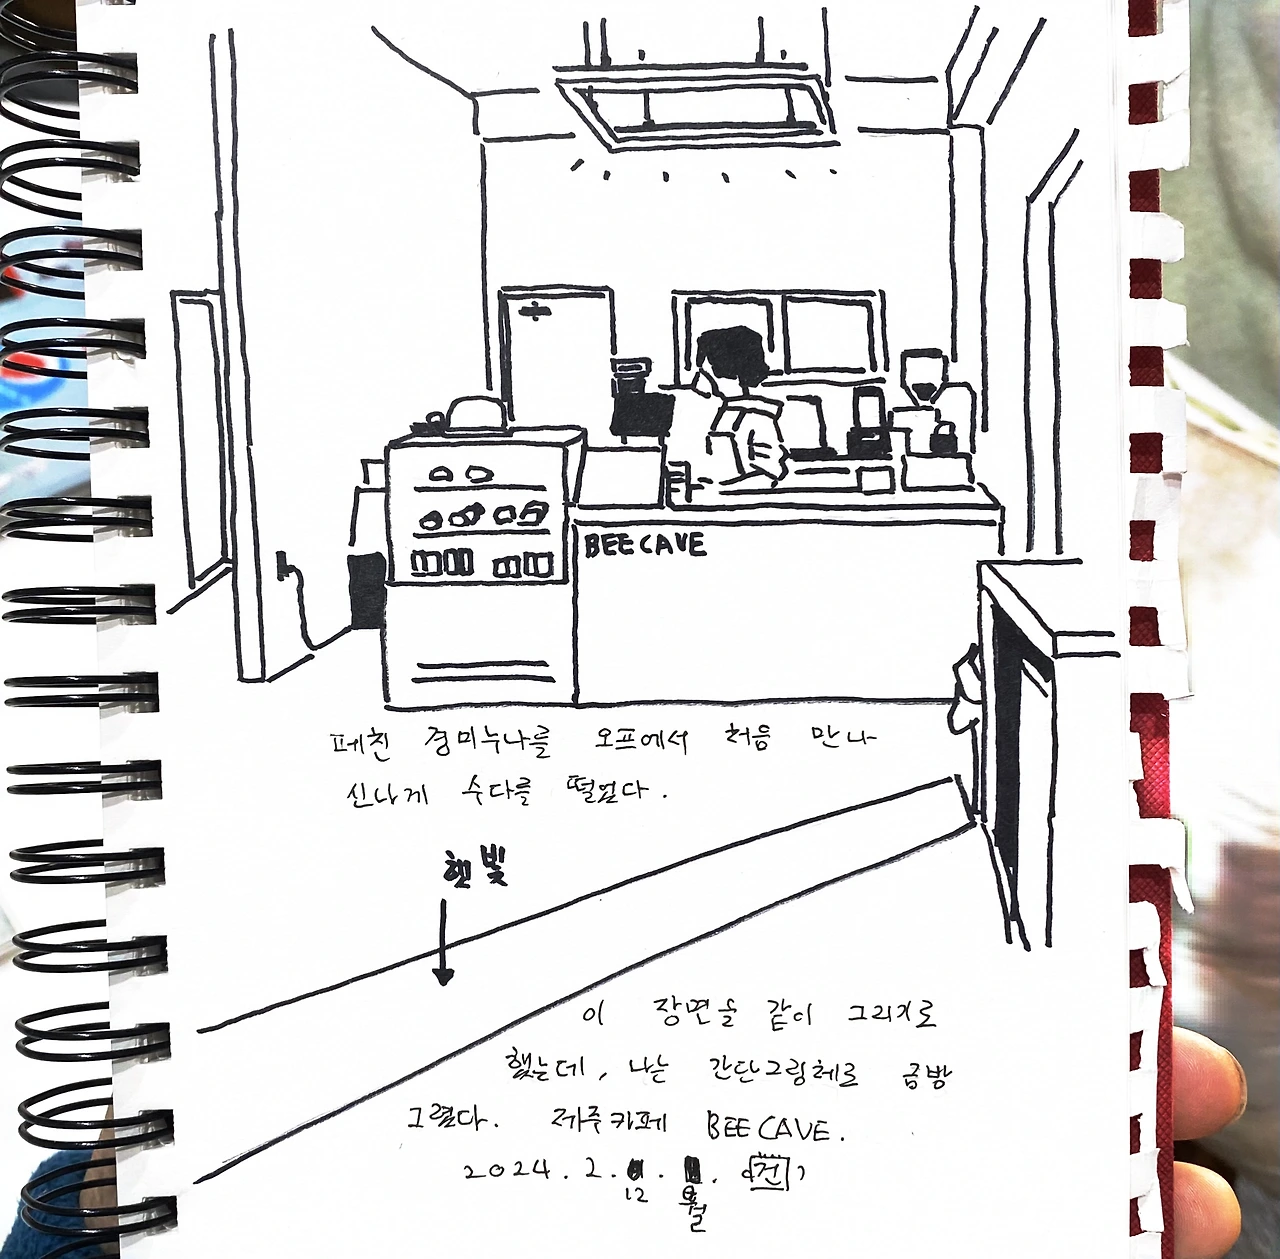 BEE CAVE
페친 경미누나를 오프에서 처음 만나
신나게 수다를 떨었다.
햇빛
이 장면을 같이 그리기로
했는데, 나는 간단그림체로 금방
그렸다. 제주카페 BEE CAVE.
2024.2. . .
12 월
건